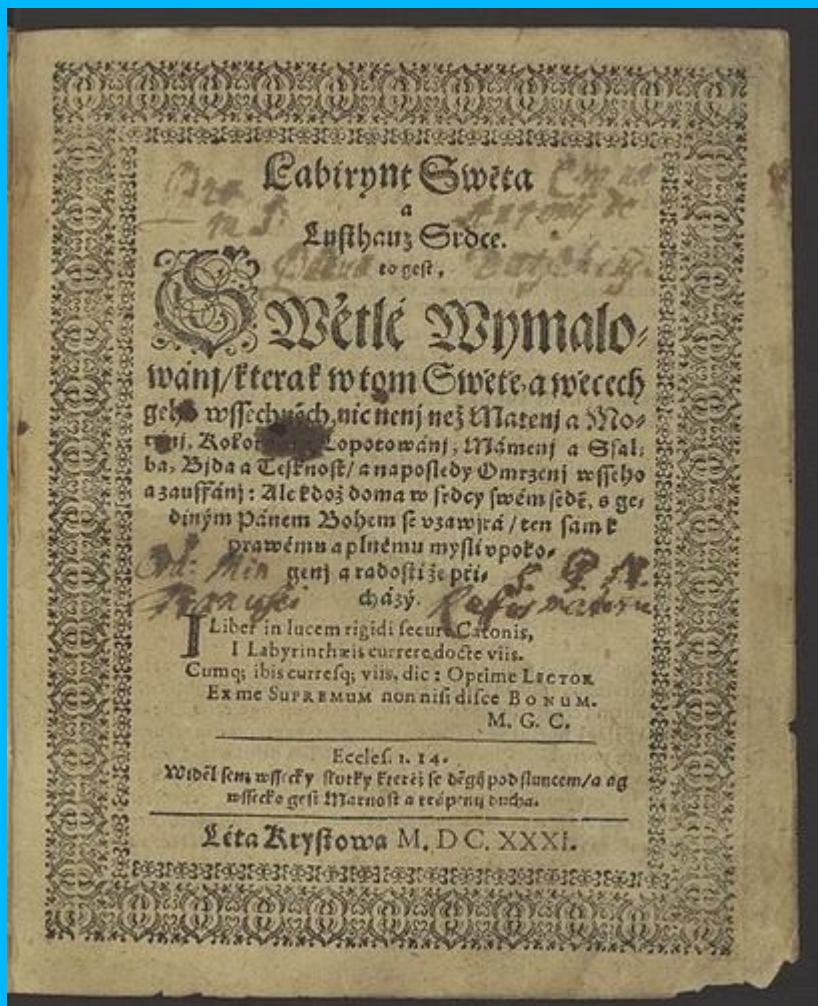 Labirynt Swěta
a
Lusthauz Srdce.
to gest,
SWětlé Wymalo-
wánj/kterak w tom Swětě, a wěcech
geho wssechněch, nic nenj než Matenj a Mo-
Lopotowánj, Mámenj a Ssal-
ba, Bjda a Tesknost/ a naposledy Omrzenj wsseho
a zauffánj: Ale kdož doma w srdcy swém sedě, s ge-
diným Pánem Bohem se vzawjrá/ ten sam k
prawému a plnému mysli vpoko-
genj a radosti že při-
cházý.
I Liber in lucem rigidi secure Catonis,
I Labyrinthæis currere docte viis.
Cumq; ibis curresq; viis, dic: Optime LECTOR
Ex me SUPREMUM non nisi disce BONUM.
M. G. C.
Eccles. 1. 14.
Widěl sem wssecky skutky kteréž se děgj pod sluncem/ a ag
wssecko gest Marnost a trápenj ducha.
Léta Krystowa M. DC. XXXI.